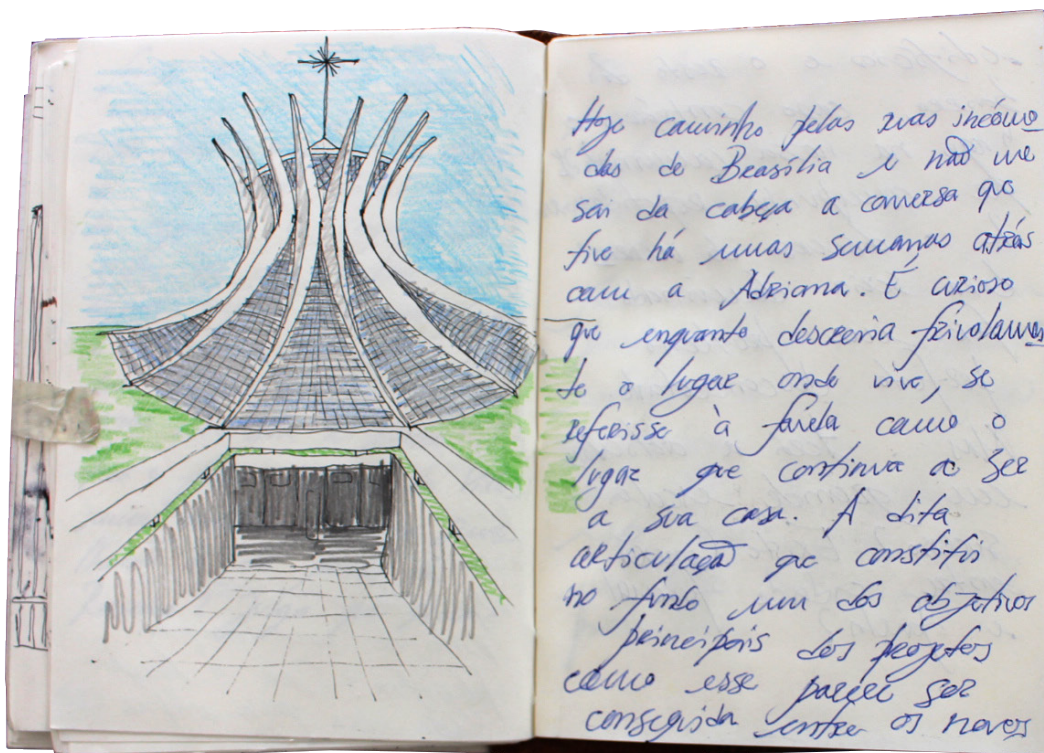 Hoje caminho pelas ruas incómo
das de Brasília e não me
sai da cabeça a conversa que
tive há umas semanas atrás
com a Adriana. É curioso
que enquanto descrevia frivolamen
te o lugar onde vive, se
referisse à favela como o
lugar que continua a ser
a sua casa. A dita
articulação que constitui
no fundo um dos objetivos
principais dos projetos
como esse parece ser
conseguida entre os novos